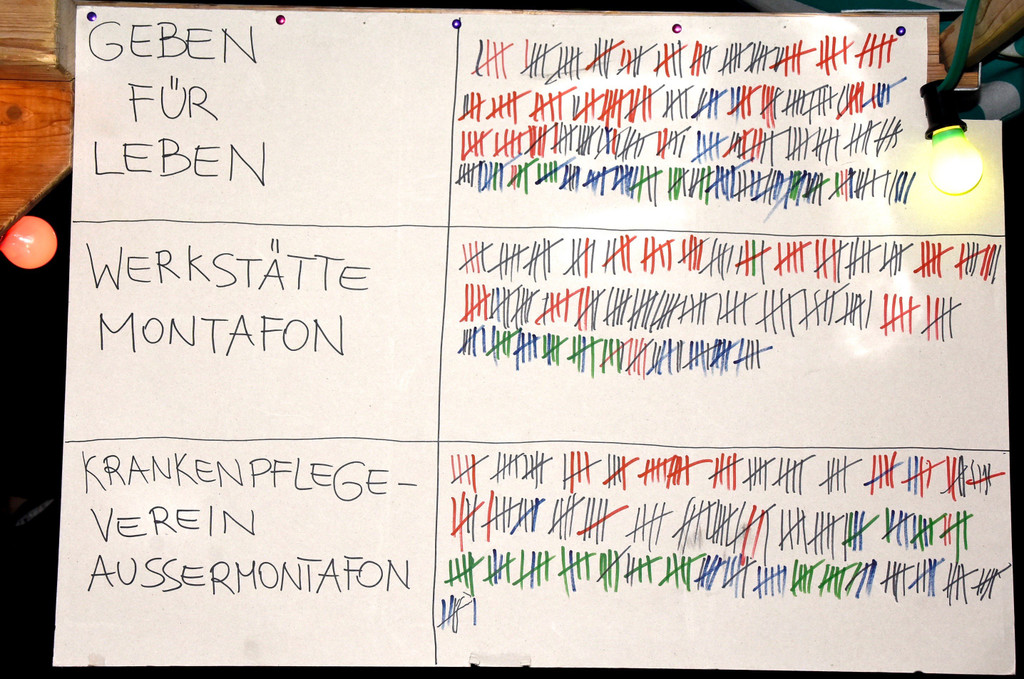 GEBEN
FÜR
LEBEN
WERKSTÄTTE
MONTAFON
KRANKENPFLEGE-
VEREIN
AUSSERMONTAFON